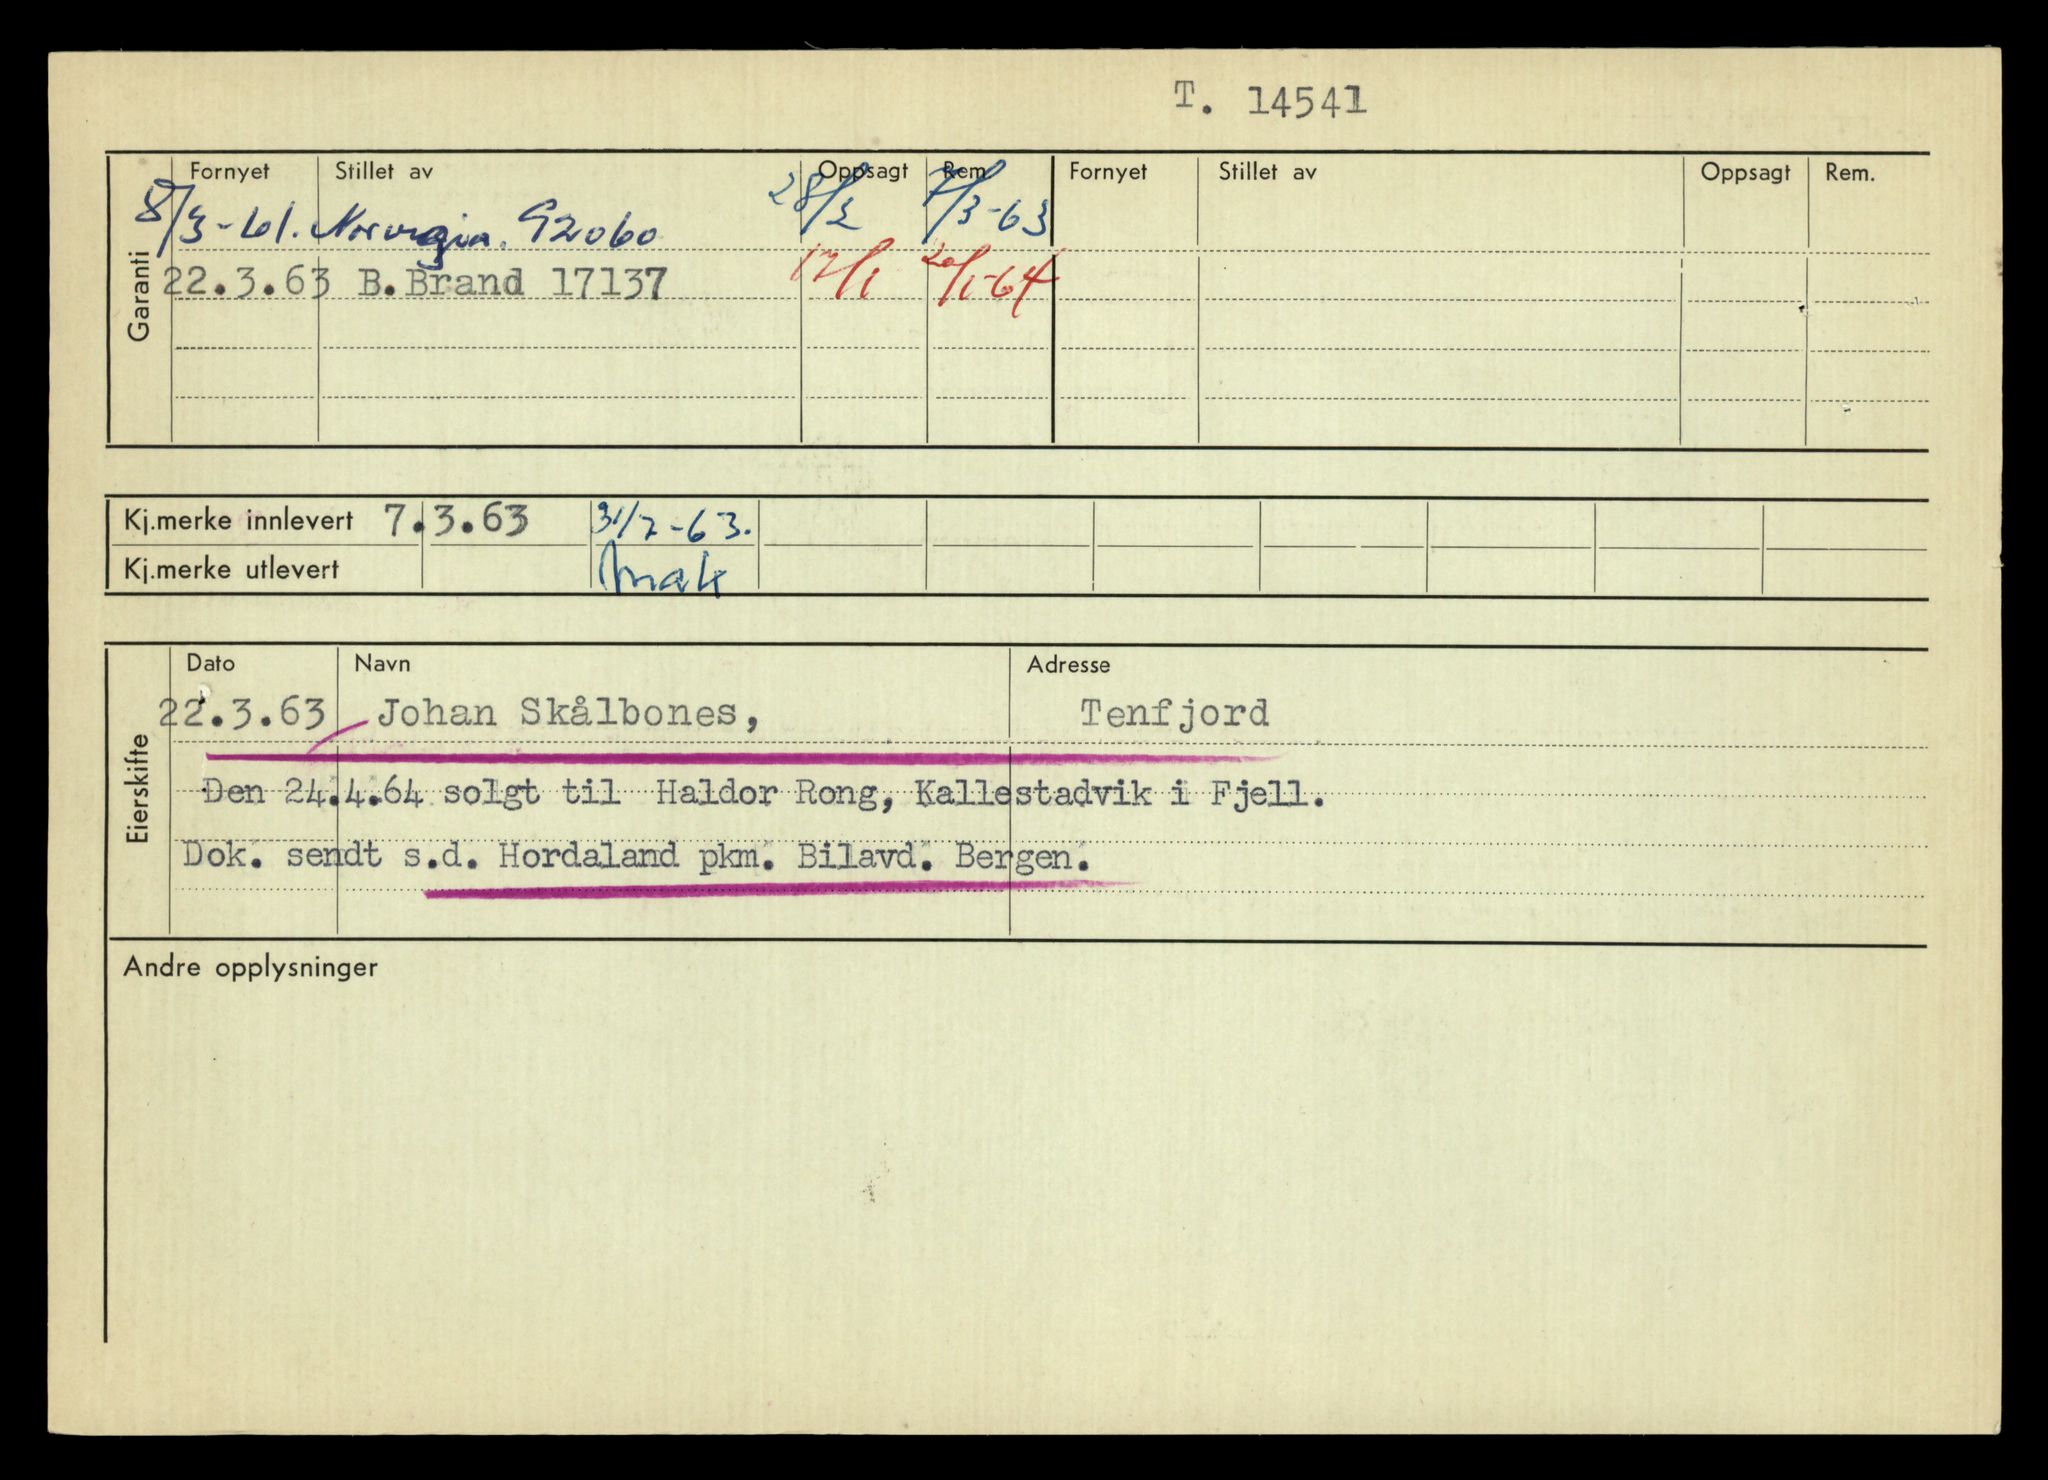 T. 14541
Fornyet Stillet av Oppsagt Rem. Fornyet Stillet av Oppsagt Rem.
Garanti
8/3-61. Norvegia. 92060 28/2 7/3-63
22.3.63 B.Brand 17137 17/1 20/1-64
Kj.merke innlevert 7.3.63 31/7-63.
Kj.merke utlevert
Eierskifte
Dato Navn Adresse
22.3.63 Johan Skålbones, Tenfjord
Den 24.4.64 solgt til Haldor Rong, Kallestadvik i Fjell.
Dok. sendt s.d. Hordaland pkm. Bilavd. Bergen.
Andre opplysninger